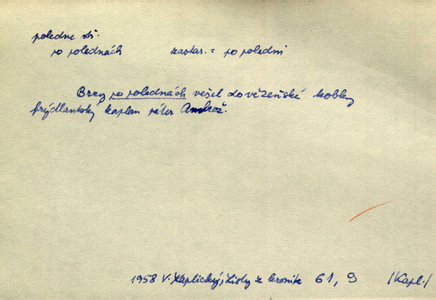 poledne stř.
po polednách zastar. = po poledni
Brzy po polednách vešel do vězeňské kobky
frýdlantský kaplan páter
1958 V. Kaplický, Listy z kronik 61, 9 /Kapl./